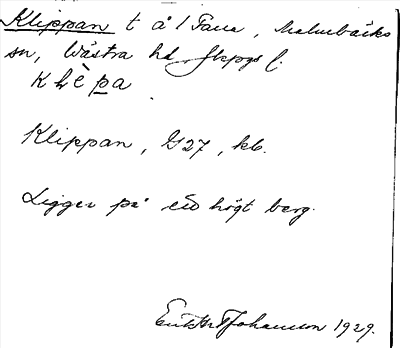 Klippan t å 1 Tava, Malmbäcks
sn, Wästra hd Jkpgs l.
Klippan, G27, kb.
Ligger på ett högt berg.
Johansson 1929.